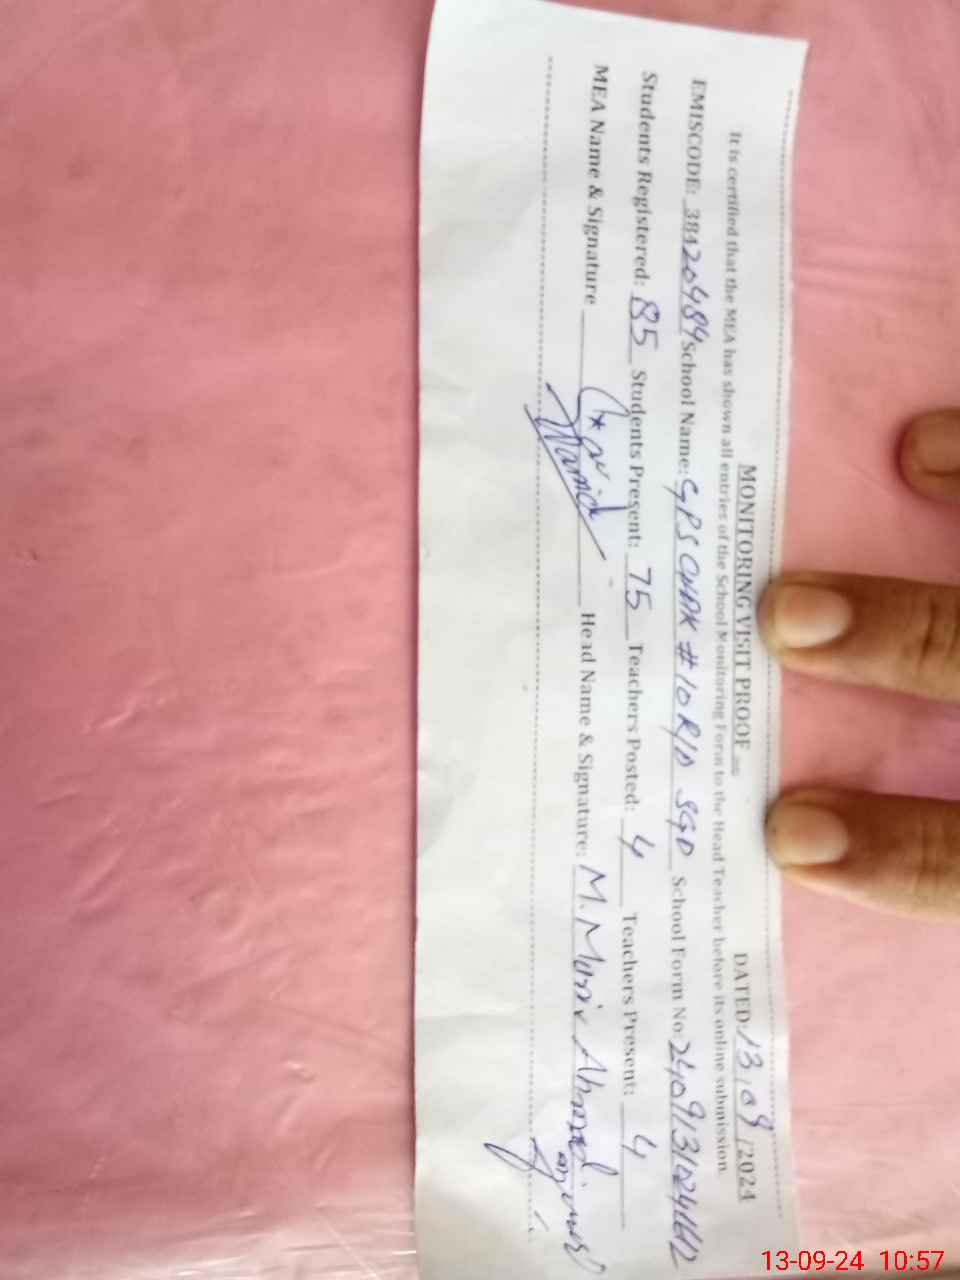 MONITORING VISIT PROOF DATED: 13.09/2024
It is certified that the MEA has shown all entries of the School Monitoring Form to the Head Teacher before its online submission
EMISCODE: 38420484 School Name: GPS CHAK # 10 R/D SGD School Form No:
Students Registered: 85 Students Present: 75 Teachers Posted: 4 Teachers Present: 4
MEA Name & Signature Head Name & Signature: M. Ahmad
13-09-24 10:57